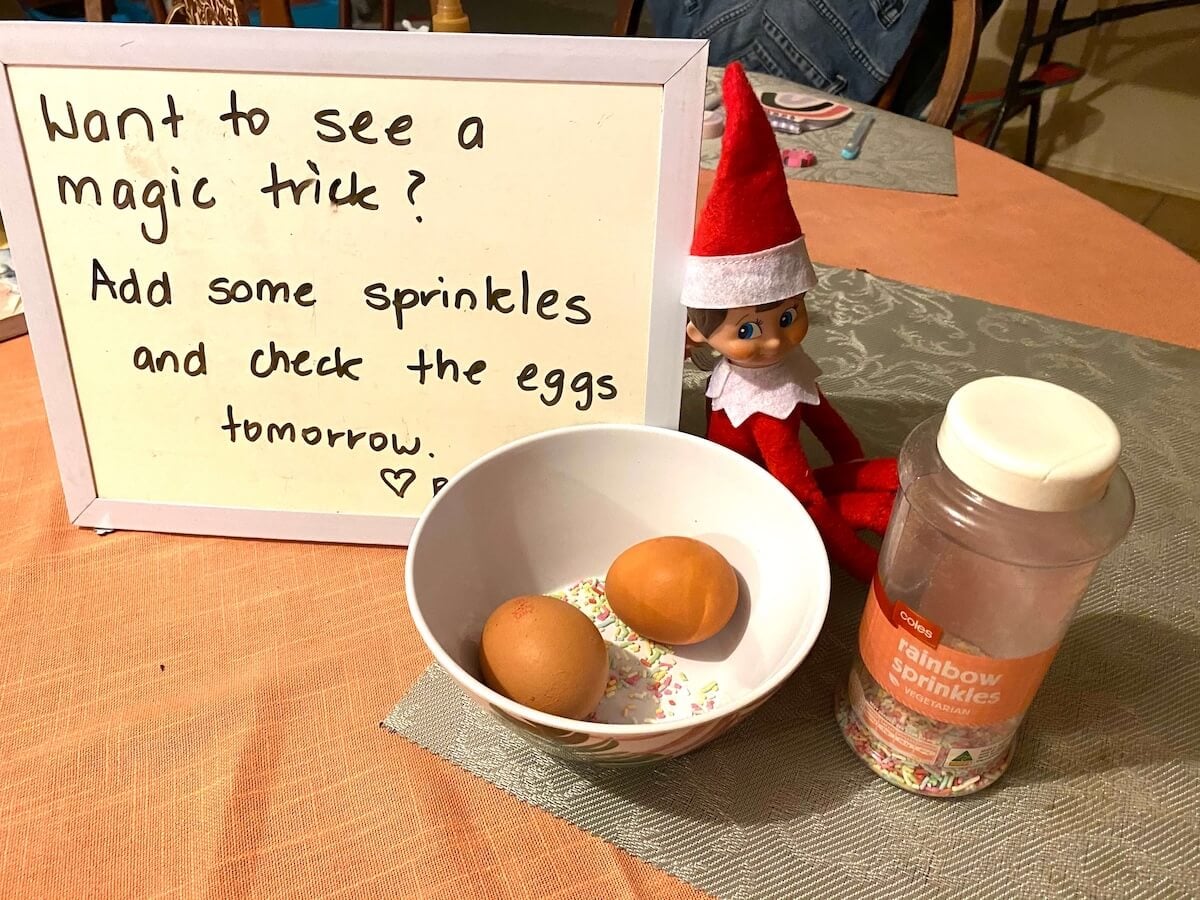 Want to see a
magic trick?
Add some sprinkles
and check the eggs
tomorrow.
♡
coles
rainbow
sprinkles
VEGETARIAN